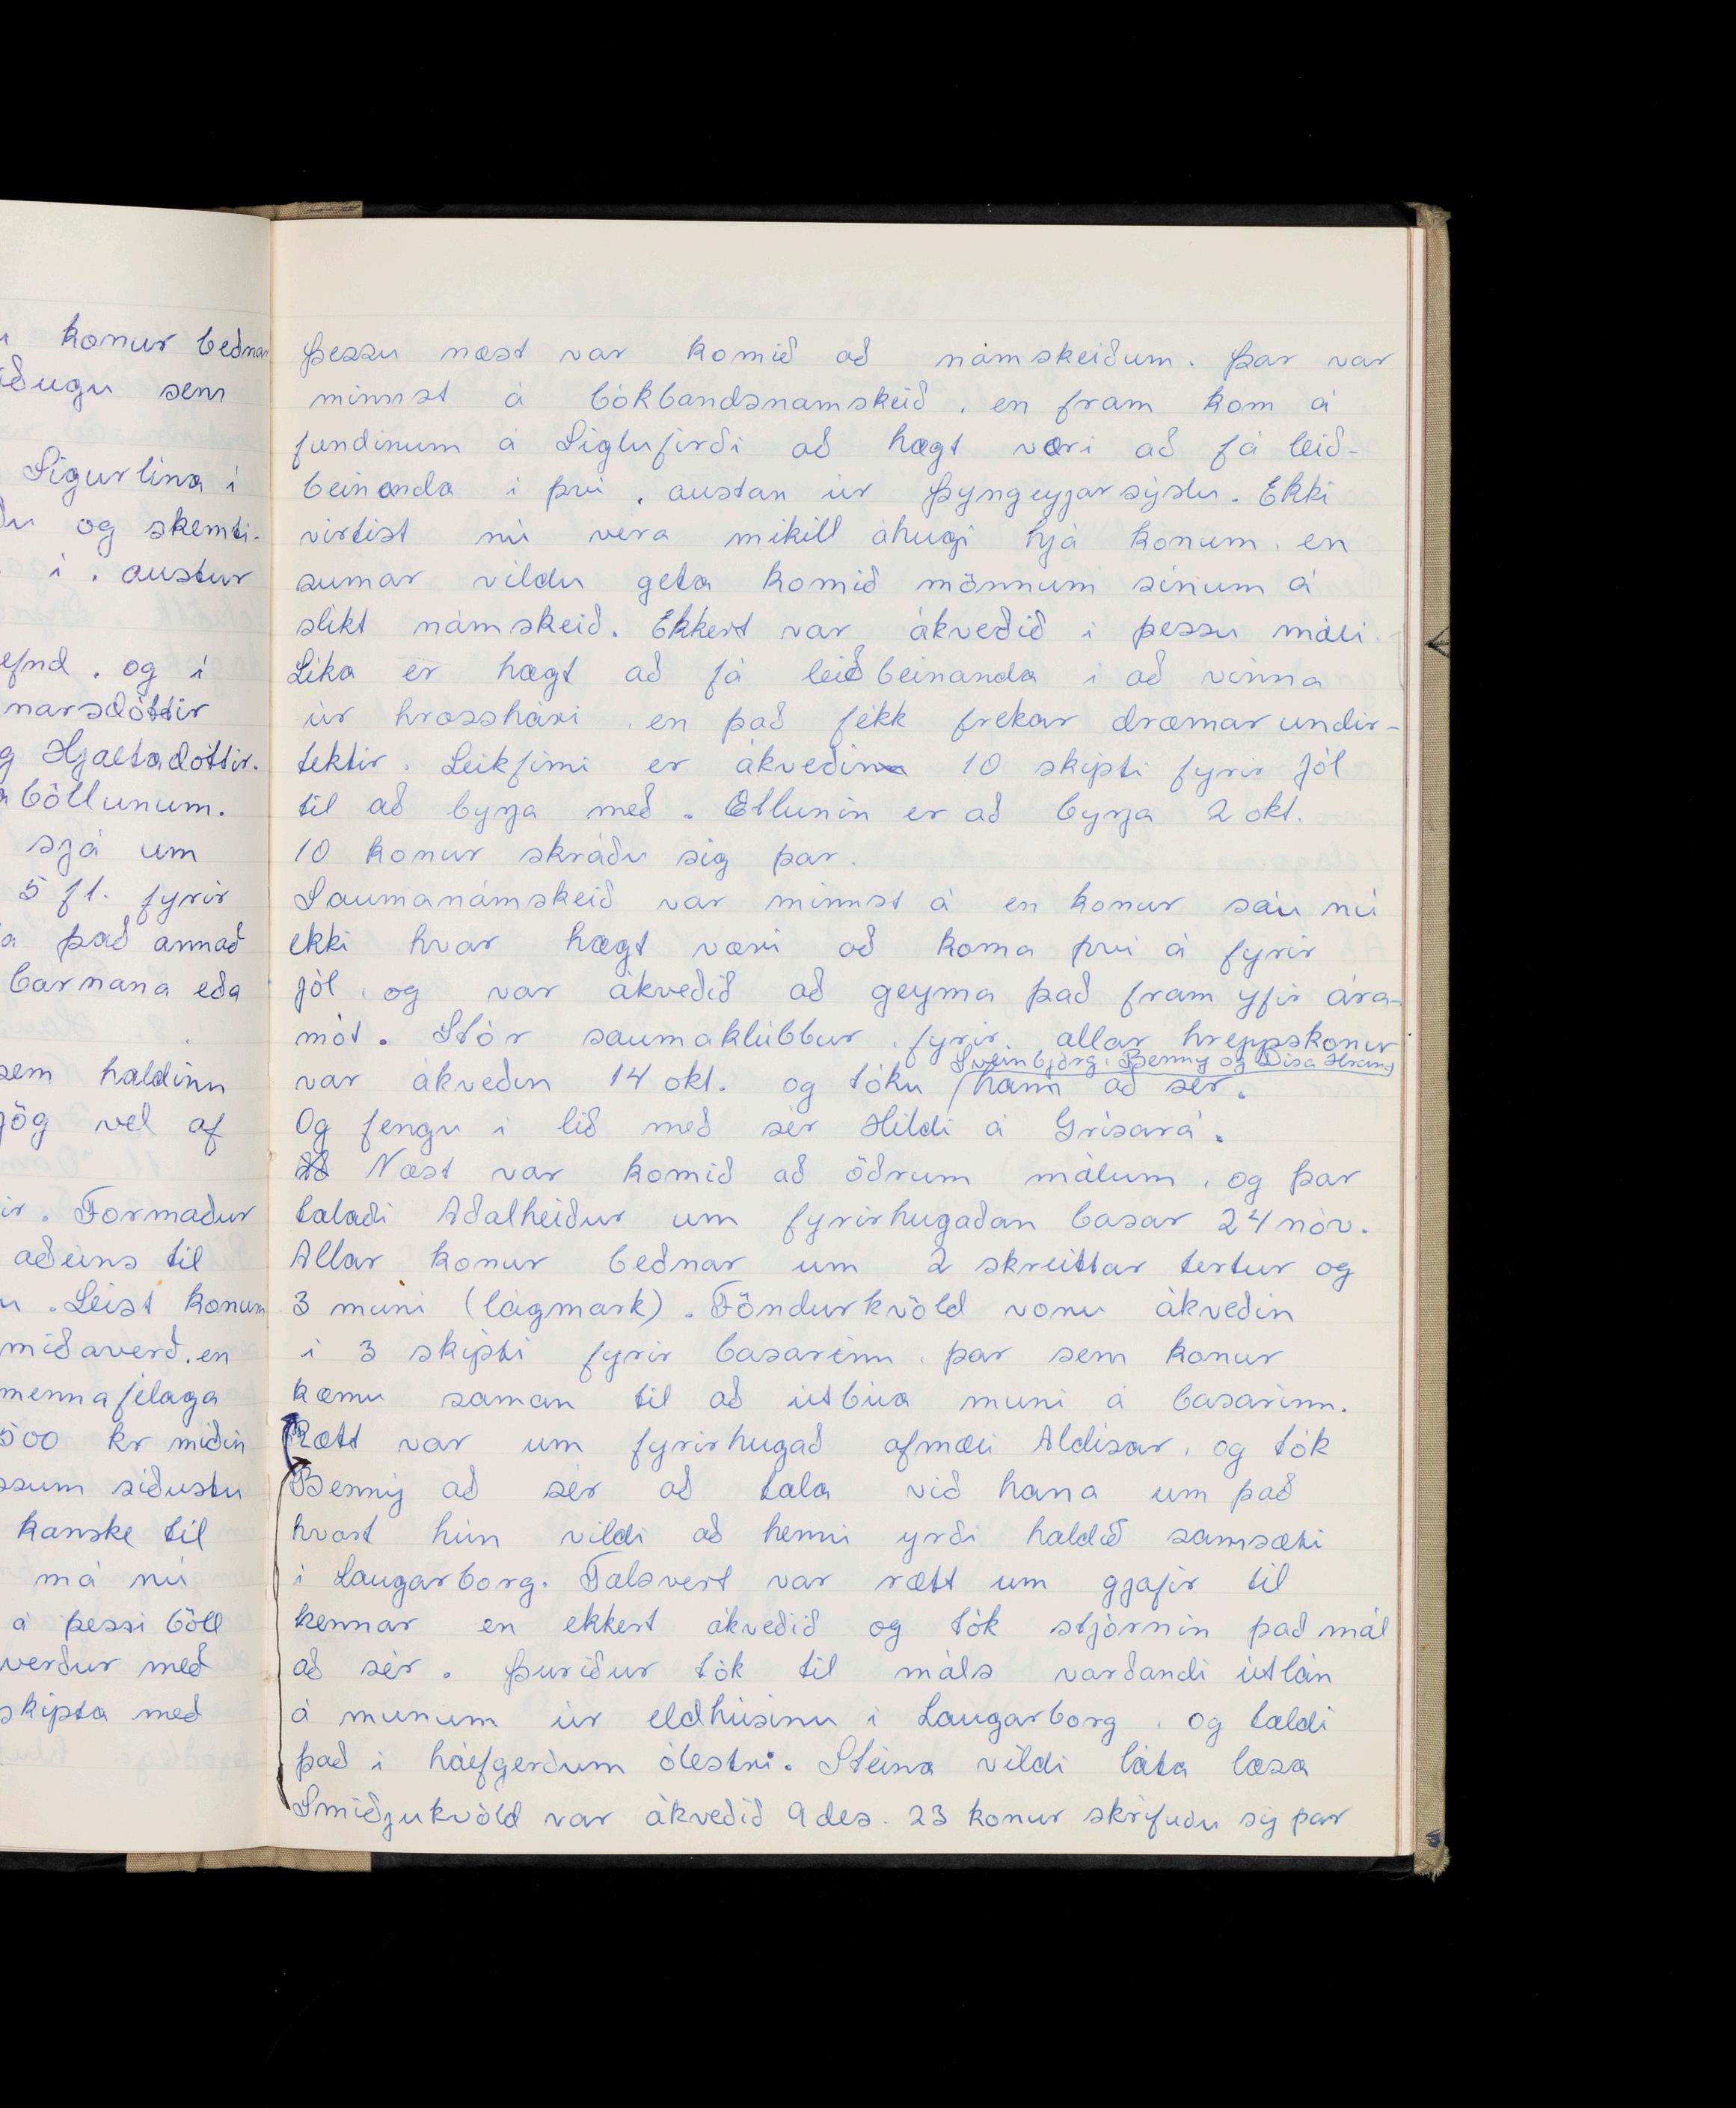 konur beðnar
sem
Sigurlína í
og skemti-
í. austur
efnd. og í
narsdóttir
g Hjaltadóttir.
böllunum.
sjá um
5 fl. fyrir
það annað
barnana eða
sem haldinn
jög vel af
ir. Formaður
aðeins til
. Leist konum
miðaverð. en
mennafélaga
500 kr miðin
ssum síðustu
kanske til
má nú
á þessi böll
verður með
skipta með
Þessu næst var komið að námskeiðum. Þar var
minnst á bókbandsnamskeið, en fram kom á
fundinum á Siglufirði að hægt væri að fá leið-
beinanda í því, austan úr Þyngeyjarsýslu. Ekki
virtist nú vera mikill áhugi hjá konum, en
sumar vildu geta komið mönnum sínum á
slíkt námskeið. Ekkert var ákveðið í þessu máli.
Líka er hægt að fá leiðbeinanda í að vinna
úr hrosshári, en það fékk frekar dræmar undir-
tektir. Leikfimi er ákveðin 10 skipti fyrir jól
til að byrja með. Ætlunin er að byrja 2 okt.
10 konur skráðu sig þar.
Saumanámskeið var minnst á en konur sáu nú
ekki hvar hægt væri að koma því á fyrir
jól, og var ákveðið að geyma það fram yfir ára-
mót. Stór saumaklúbbur, fyrir, allar hreppskonur
Sveinbjörg, Benny og Dísa Hrang
var ákveðin 14 okt. og tóku hann að sér.
Og fengu í lið með sér Hildi á Grísará.
Næst var komið að öðrum málum, og þar
talaði Aðalheiður um fyrirhugaðan basar 24 nóv.
Allar konur beðnar um 2 skreittar tertur og
3 muni (lágmark). Föndurkvöld voru ákveðin
í 3 skipti fyrir basarinn, þar sem konur
kæmu saman til að útbúa muni á basarinn.
Rætt var um fyrirhugað afmæli Aldísar, og tók
Benny að sér að tala við hana um það
hvort hún vildi að henni yrði haldið samsæti
í Laugarborg. Talsvert var rætt um gjafir til
kennar en ekkert ákveðið og tók stjórnin það mál
að sér. Þuríður tók til máls varðandi útlán
á munum úr eldhúsinu í Laugarborg, og taldi
það í hálfgerðum ólestri. Steina vildi láta læsa
Smiðjukvöld var ákveðið 9 des. 23 konur skrifuðu sig þar